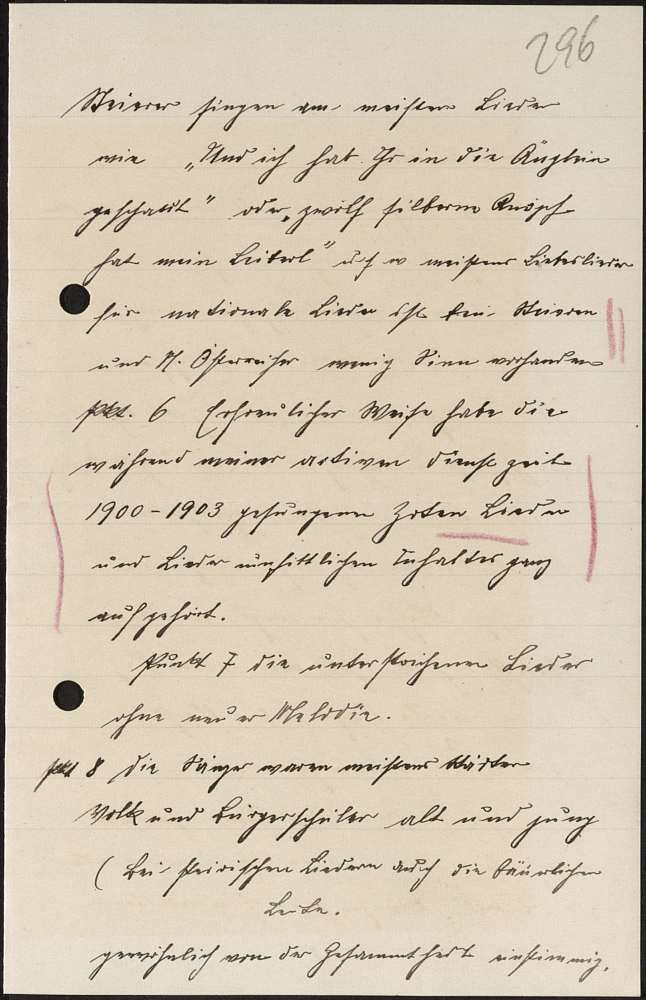 296
Steirer singen am meisten Lieder
wie „Und ich hab Ihr in die Äuglein
geschaut" oder „zwölf silberne Knöpf
hat mein Leiberl" usf w meistens Liebeslieder
für nationale Lieder ist bei Steirern
und N. Österreicher wenig Sinn vorhanden
Pkt. 6 Erfreulicher Weise habe die
während meiner aktiven Dienstzeit
1900-1903 gesungenen Zoten Lieder
und Lieder unsittlichen Inhaltes ganz
aufgehört.
Punkt 7 die unterstrichenen Lieder
ohne neuer Melodie.
Pkt 8 Die Sänger waren meistens Städter
Volk und Bürgerschüler alt und jung
(bei steirischen Liedern auch die bäuerlichen
Leute.
gewöhnlich von der Gesammtheit einstimmig.